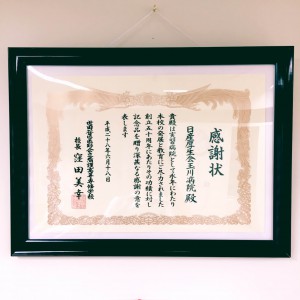 感謝状
日産厚生会玉川病院 殿
貴院は実習病院として永年にわたり
本校の発展と教育にご尽力されました
創立五十周年にあたりその功績に対し
記念品を贈り深甚なる感謝の意を
表します
平成二十八年六月十八日
校長 窪田美幸